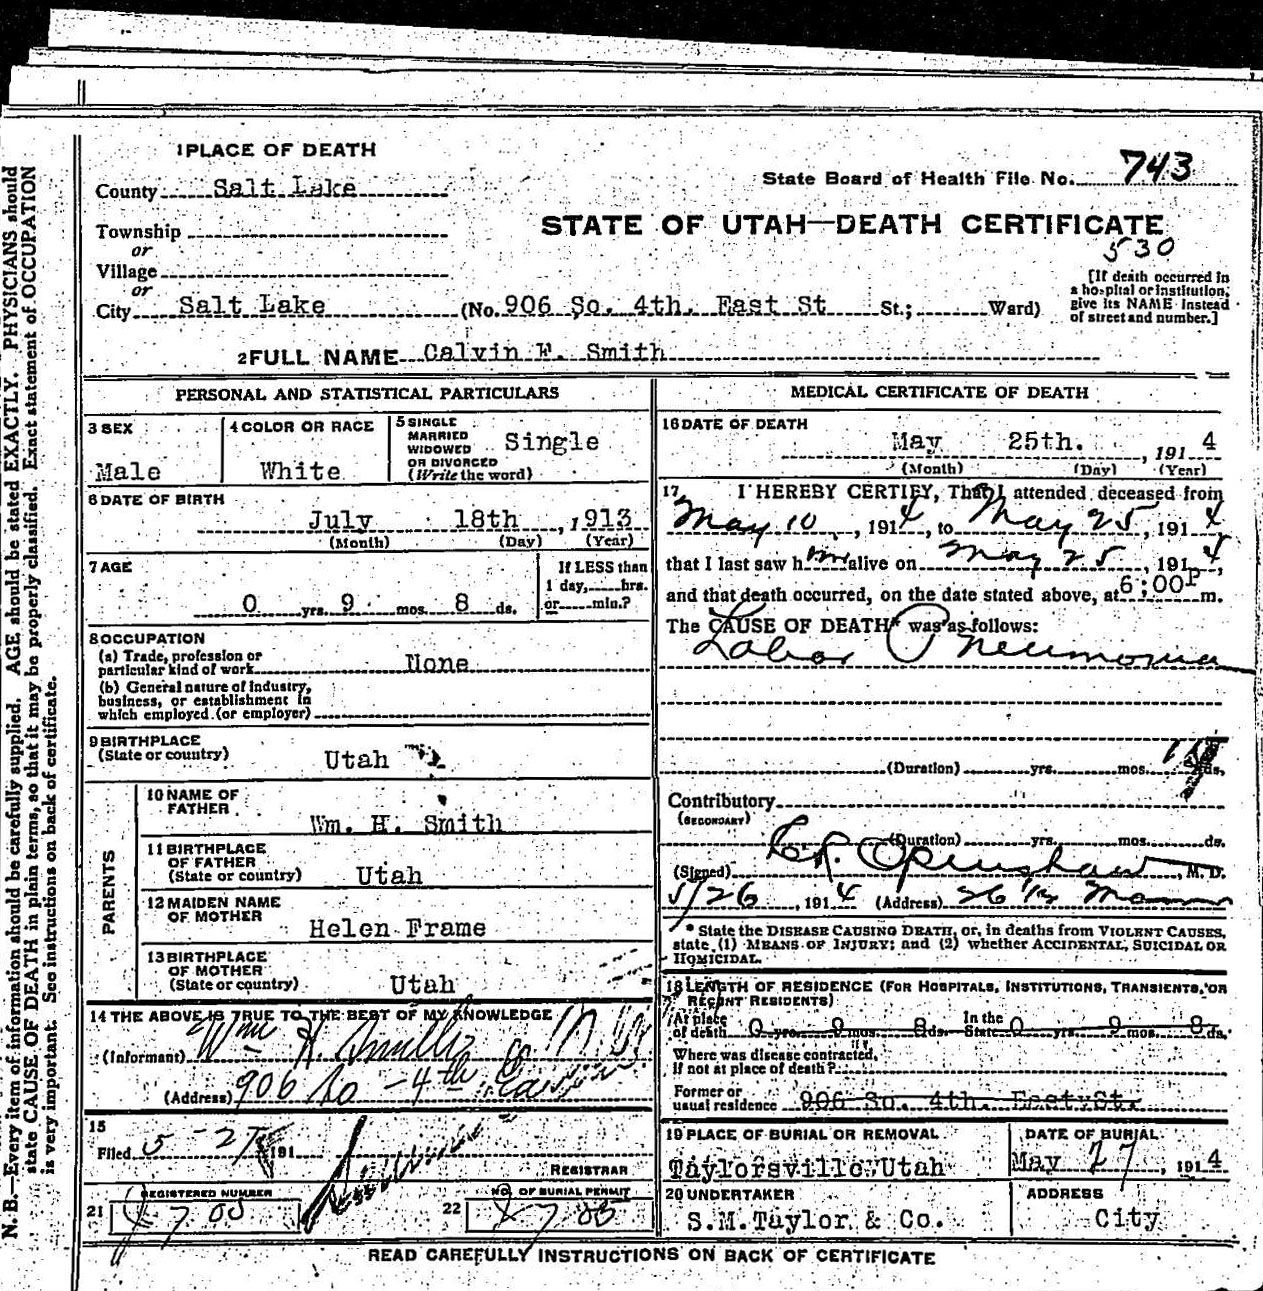 1 PLACE OF DEATH
County Salt Lake
State Board of Health File No. 743
STATE OF UTAH—DEATH CERTIFICATE
530
Township
or
Village
or
City Salt Lake (No. 906 So. 4th. East St St.; Ward)
[If death occurred in a hospital or institution, give its NAME instead of street and number.]
2 FULL NAME Calvin F. Smith
PERSONAL AND STATISTICAL PARTICULARS
3 SEX
Male
4 COLOR OR RACE
White
5 SINGLE
MARRIED
WIDOWED
OR DIVORCED
(Write the word)
Single
6 DATE OF BIRTH
July 18th , 1913
(Month) (Day) (Year)
7 AGE
0 yrs. 9 mos. 8 ds.
If LESS than
1 day, hrs.
or min.?
8 OCCUPATION
(a) Trade, profession or
particular kind of work None
(b) General nature of industry,
business, or establishment in
which employed (or employer)
9 BIRTHPLACE
(State or country) Utah
PARENTS
10 NAME OF
FATHER
Wm. H. Smith
11 BIRTHPLACE
OF FATHER
(State or country) Utah
12 MAIDEN NAME
OF MOTHER
Helen Frame
13 BIRTHPLACE
OF MOTHER
(State or country) Utah
14 THE ABOVE IS TRUE TO THE BEST OF MY KNOWLEDGE
(Informant) Wm H. Smith
(Address) 906 So - 4th East
15
Filed 5-27 191
REGISTRAR
21 REGISTERED NUMBER
22 NO. OF BURIAL PERMIT
MEDICAL CERTIFICATE OF DEATH
16 DATE OF DEATH
May 25th. , 1914
(Month) (Day) (Year)
17 I HEREBY CERTIFY, That I attended deceased from
May 10 , 1914, to May 25, 1914
that I last saw him alive on May 25, 1914,
and that death occurred, on the date stated above, at 6:00P m.
The CAUSE OF DEATH* was as follows:
Lobar Pneumonia
(Duration) yrs. mos. ds.
Contributory
(SECONDARY)
(Duration) yrs. mos. ds.
(Signed) Openshaw , M. D.
5/26 , 1914 (Address) 26 1/2 Main
* State the DISEASE CAUSING DEATH, or, in deaths from VIOLENT CAUSES,
state (1) MEANS OF INJURY; and (2) whether ACCIDENTAL, SUICIDAL OR
HOMICIDAL.
18 LENGTH OF RESIDENCE (FOR HOSPITALS, INSTITUTIONS, TRANSIENTS, OR
RECENT RESIDENTS)
At place
of death 0 yrs. 9 mos. 8 ds. In the State 0 yrs. 9 mos. 8 ds.
Where was disease contracted,
If not at place of death?
Former or
usual residence 906 So. 4th. East St.
19 PLACE OF BURIAL OR REMOVAL
Taylorsville Utah
DATE OF BURIAL
May 27 , 1914
20 UNDERTAKER
S.M.Taylor & Co.
ADDRESS
City
READ CAREFULLY INSTRUCTIONS ON BACK OF CERTIFICATE
N. B.—Every item of information should be carefully supplied. AGE should be stated EXACTLY. PHYSICIANS should
state CAUSE OF DEATH in plain terms, so that it may be properly classified. Exact statement of OCCUPATION
is very important. See instructions on back of certificate.